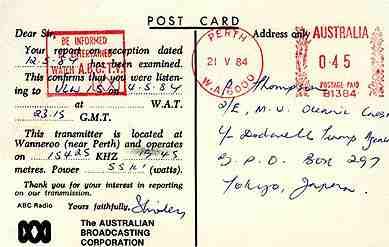 POST CARD
Dear Sir,
Your report on reception dated
12.5.84 has been examined.
BE INFORMED
BE ENTERTAINED
WATCH A.B.C. T.V.
This confirms that you were listen-
ing to VLW 15 4.5.84
at W.A.T.
23.15 G.M.T.
This transmitter is located at
Wanneroo (near Perth) and operates
on 15425 KHZ 19.45
metres. Power (watts).
Thank you for your interest in reporting
on our transmission.
ABC Radio Yours faithfully,
The AUSTRALIAN
BROADCASTING
CORPORATION
Address only
PERTH
21 V 84
W.A. 6000
AUSTRALIA
0.45
POSTAGE PAID
B1384
R. Thompson
2/E, M.V. Oceanic
Dodwell
G.P.O. Box 297
Tokyo, Japan.